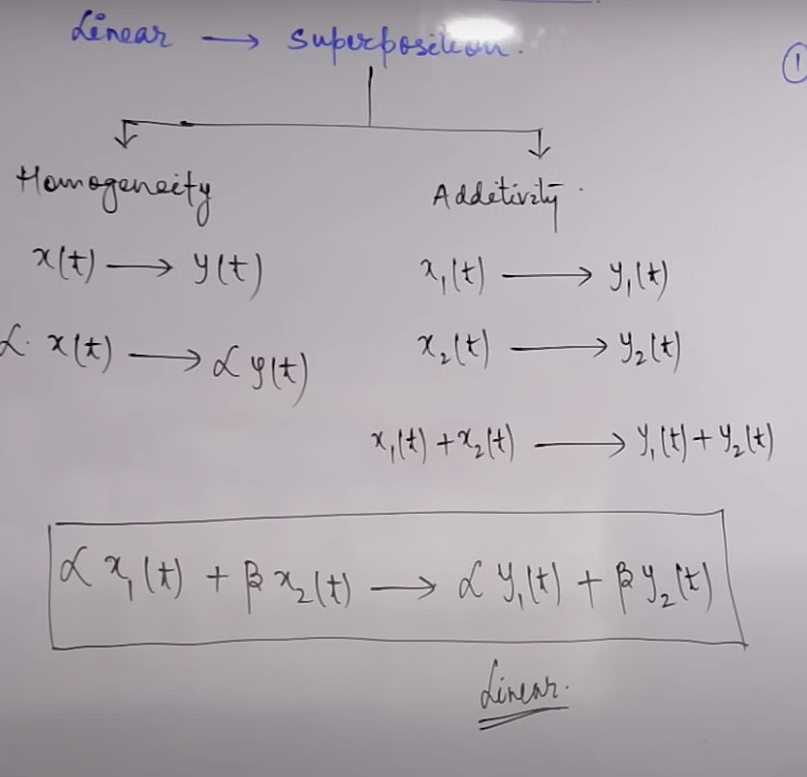 Linear → Superposition.
1
Homogeneity
Additivity.
x(t) → y(t)
x₁(t) → y₁(t)
α. x(t) → α y(t)
x₂(t) → y₂(t)
x₁(t) + x₂(t) → y₁(t) + y₂(t)
α x₁(t) + β x₂(t) → α y₁(t) + β y₂(t)
Linear.